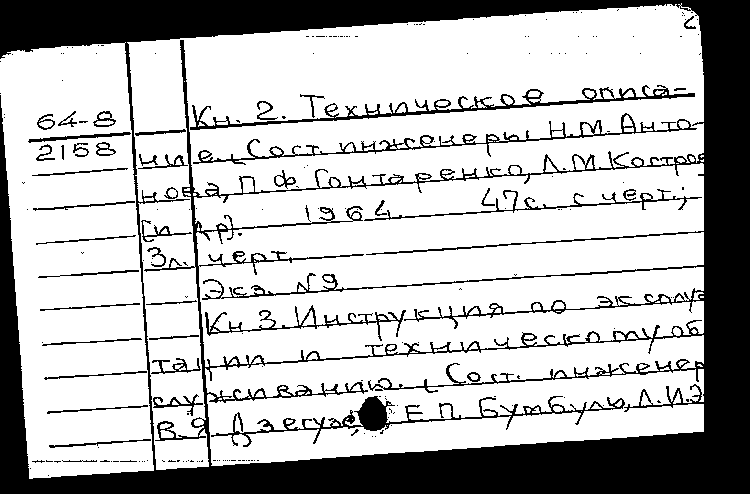 64-8 Кн. 2. Техническое описа-
2158 ние. Сост. инженеры Н.М. Анто-
нова, П.Ф. Гонтаренко, Л.М. Костров
[и др]. 1964. 47с. с черт.;
3л. черт.
Экз. №9
Кн 3. Инструкция по эксплуа
тации и техническому об
служиванию. Сост. инженер
Е.П. Бумбуль, Л.И.